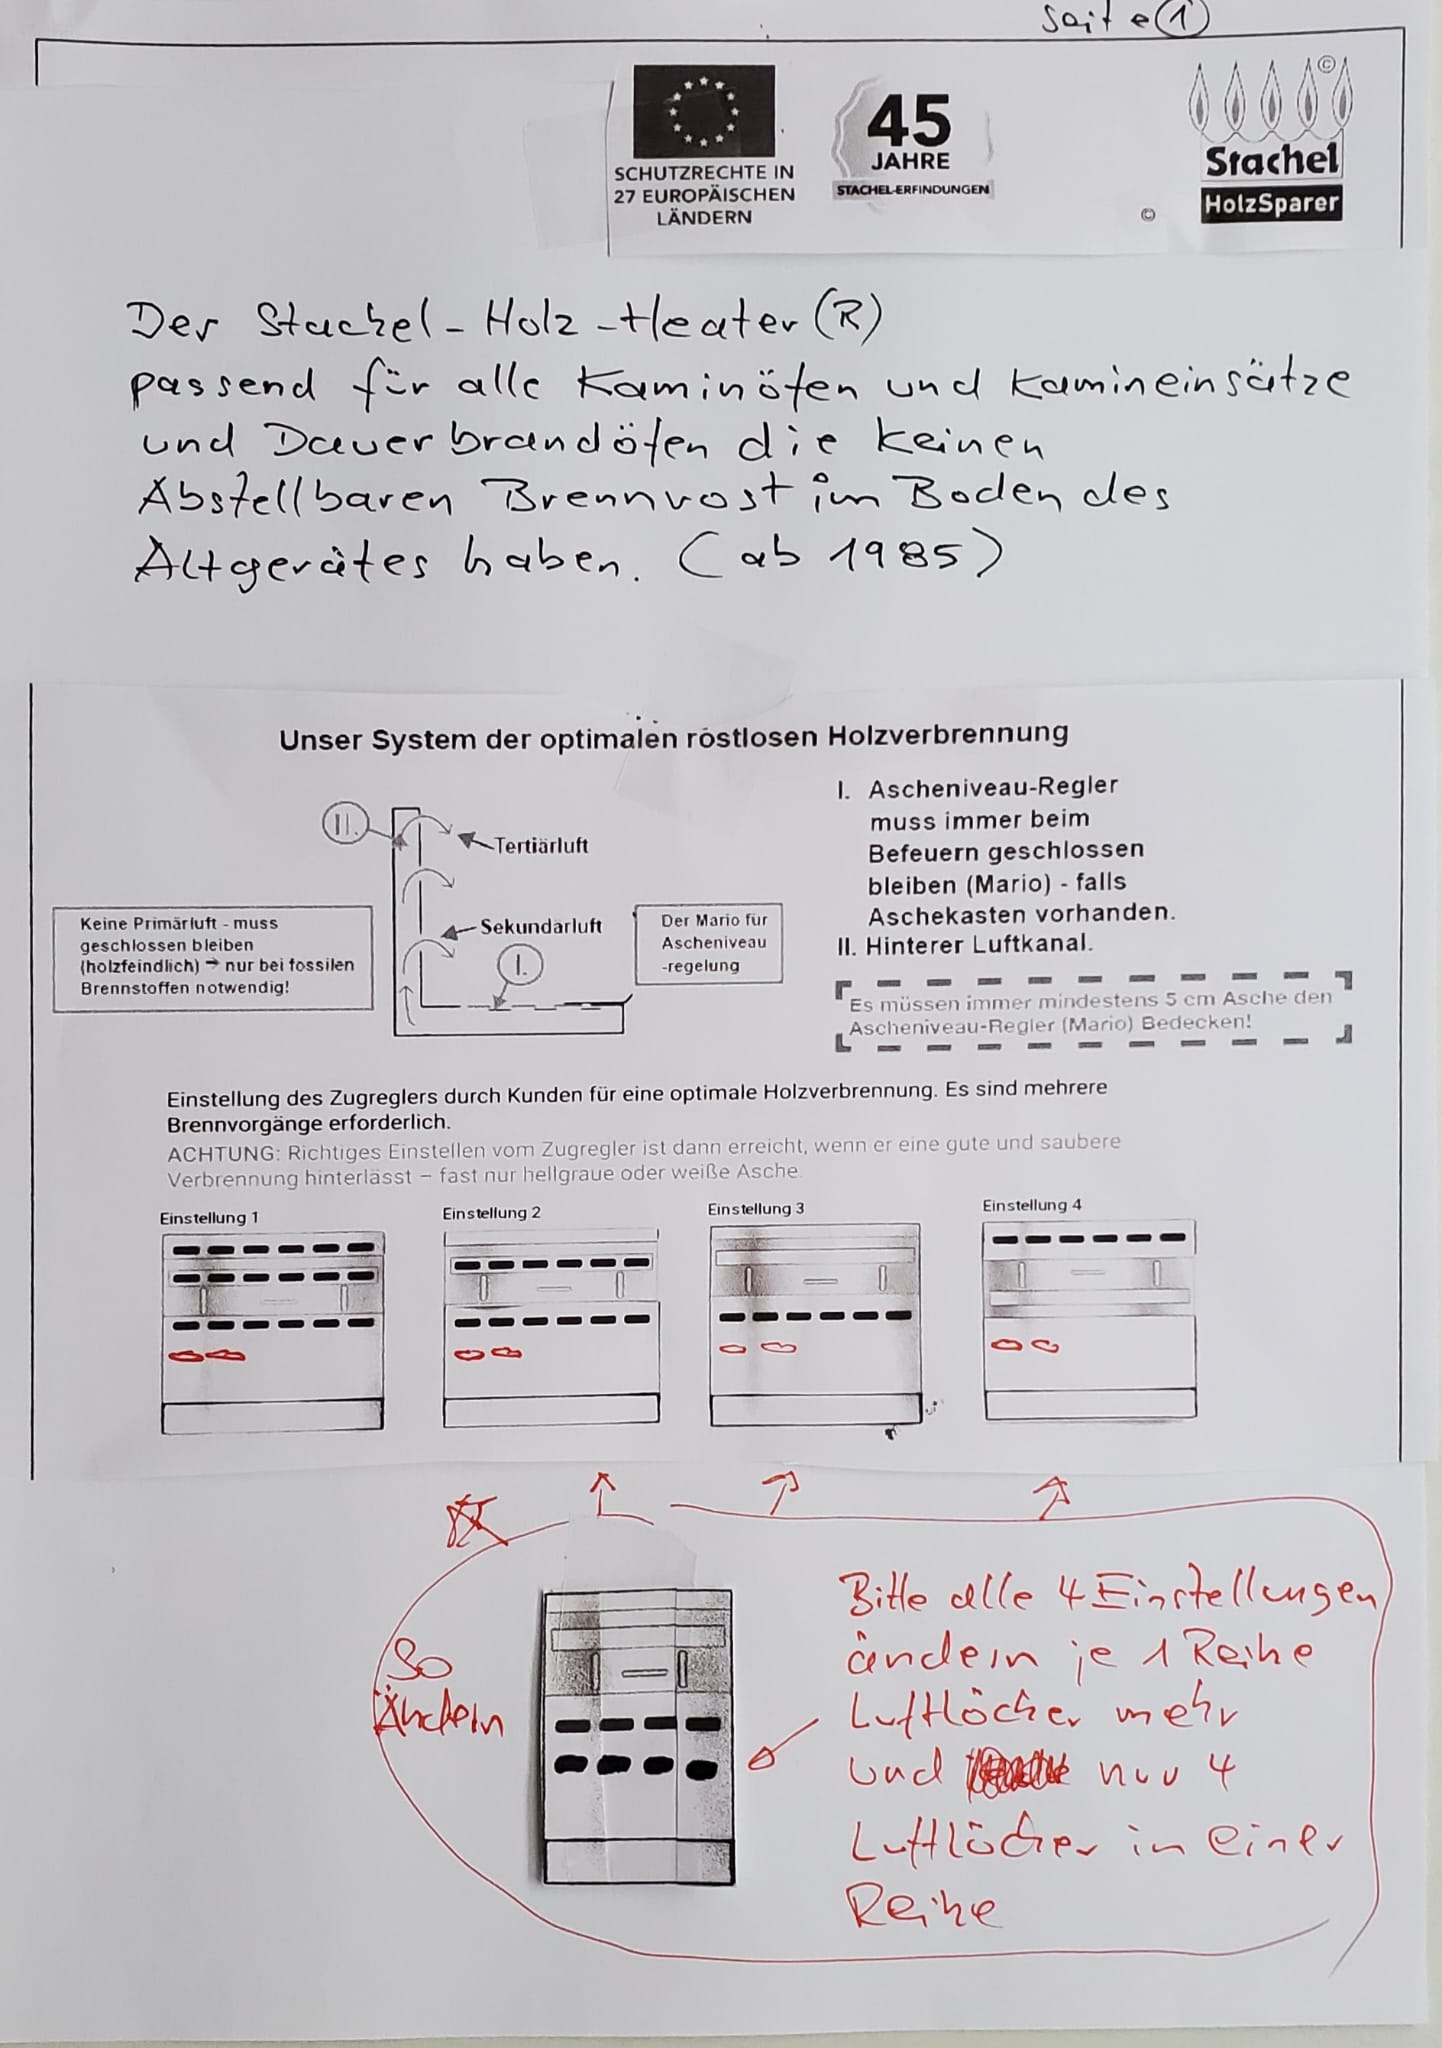 Seite 1
SCHUTZRECHTE IN
27 EUROPÄISCHEN
LÄNDERN
45
JAHRE
STACHEL-ERFINDUNGEN
©
©
Stachel
HolzSparer
Der Stachel-Holz-Heater (R)
passend für alle Kaminöfen und Kamineinsätze
und Dauerbrandöfen die keinen
Abstellbaren Brennrost im Boden des
Altgerätes haben. (ab 1985)
Unser System der optimalen rostlosen Holzverbrennung
II.
Tertiärluft
Sekundärluft
I.
Keine Primärluft - muss
geschlossen bleiben
(holzfeindlich) → nur bei fossilen
Brennstoffen notwendig!
Der Mario für
Ascheniveau
-regelung
I. Ascheniveau-Regler
muss immer beim
Befeuern geschlossen
bleiben (Mario) - falls
Aschekasten vorhanden.
II. Hinterer Luftkanal.
Es müssen immer mindestens 5 cm Asche den
Ascheniveau-Regler (Mario) Bedecken!
Einstellung des Zugreglers durch Kunden für eine optimale Holzverbrennung. Es sind mehrere
Brennvorgänge erforderlich.
ACHTUNG: Richtiges Einstellen vom Zugregler ist dann erreicht, wenn er eine gute und saubere
Verbrennung hinterlässt – fast nur hellgraue oder weiße Asche.
Einstellung 1
Einstellung 2
Einstellung 3
Einstellung 4
So
Ändern
Bitte alle 4 Einstellungen
ändern je 1 Reihe
Luftlöcher mehr
und nur 4
Luftlöcher in einer
Reihe